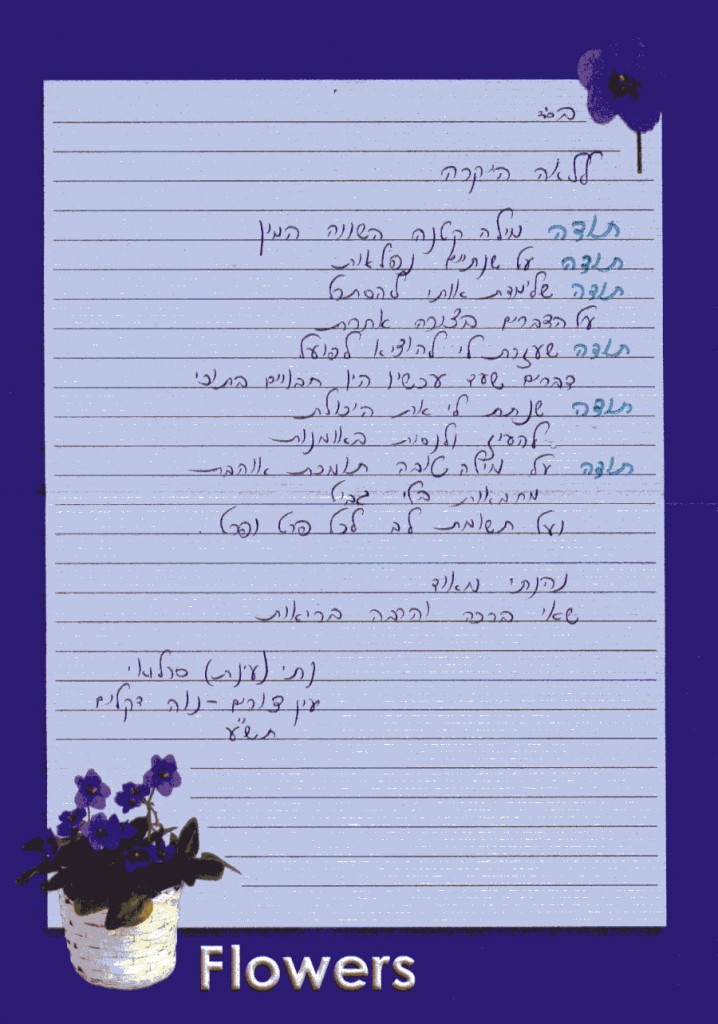 בס"ד
ללאה היקרה
תודה מילה קטנה השווה המון
תודה על שנתיים נפלאות
תודה שלימדת אותי להסתכל
על הדברים בצורה אחרת
תודה שעזרת לי להוציא לפועל
דברים שעד עכשיו היו חבויים בתוכי
תודה שנתת לי את היכולת
להעיז ולנסות באומנות
תודה על מילה טובה תומכת אוהבת
מחבאות בלי גבול
ועל תשומת לב לכל פרט ופרט.
נהניתי מאוד
שאי ברכה והרבה בריאות
נתי (עינת)
עין צורים - נוה דקלים
תש"ע
Flowers